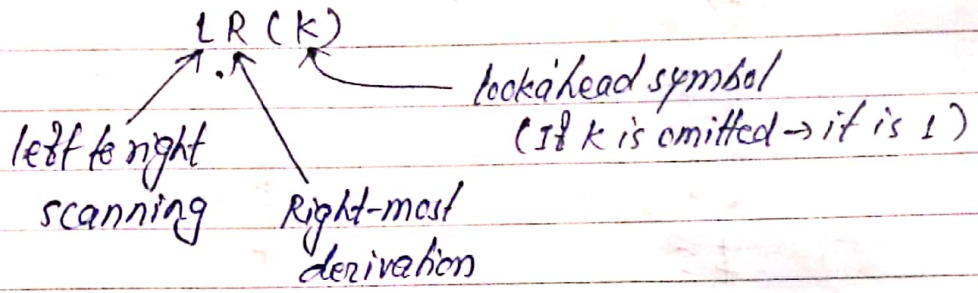 LR(k)
lookahead symbol
(If k is omitted → it is 1)
left to right
scanning
Right-most
derivation